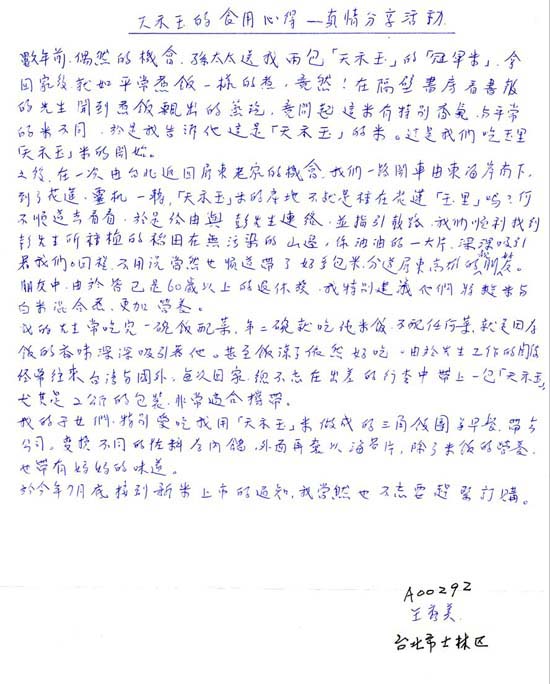 天禾玉的食用心得—真情分享活動
數年前,偶然的機會,孫太太送我兩包「天禾玉」的「冠軍米」,令
回家後就如平常煮飯一樣的煮,竟然!在隔壁書房看書報
的先生聞到煮飯飄出的蒸氣,竟問起這米有特別香氣,與平常
的米不同,於是我告訴他這是「天禾玉」的米。這是我們吃玉里
「天禾玉」米的開始。
之後,在一次由台北返回屏東老家的機會,我們一路開車由東海岸南下,
到了花蓮,靈机一轉,「天禾玉」米的產地不就是種在花蓮「玉里」嗎?何
不順道去看看,於是經由與彭先生連絡,並指引報路,我們順利找到
彭先生所種植的稻田在無污染的山邊,綠油油的一大片,深深吸引
著我們。回程,不用說當然也順道帶了好多包米,分送屏東高雄的親友。
朋友中,由於皆已是60歲以上的退休族,我特別建議他們將糙米与
白米混合煮,更加營養。
我的先生常吃完一碗飯配菜,第二碗就吃純米飯,不配任何菜,就是因為
飯的香味深深吸引著他。甚至飯涼了依然好吃。由於先生工作的關係
經常往來台湾与國外,每次回家,總不忘在出差的行李中帶上一包「天禾玉」
尤其是2公斤的包裝,非常適合攜帶。
我的子女們,特別愛吃我用「天禾玉」米做成的三角飯團當早餐,帶去
公司。變換不同的佐料為內餡,外面再夾以海苔片,除了米飯的營養,
也帶有媽媽的味道。
於今年7月底接到新米上市的通知,我當然也不忘要趕緊訂購。
A00292
王秀美
台北市士林區